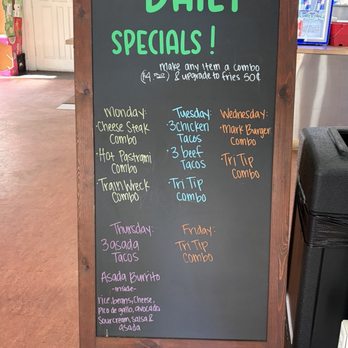 DAILY
SPECIALS!
Make any item a combo
& upgrade to fries 50¢
Monday:
·Cheese Steak
Combo
·Hot Pastrami
Combo
·Train Wreck
Combo
Tuesday:
·3 chicken
Tacos
·3 beef
Tacos
·Tri Tip
Combo
Wednesday:
·Mark Burger
Combo
·Tri Tip
Combo
Thursday:
3 asada
Tacos
Asada Burrito
-inside-
rice, beans, cheese,
Pico de gallo, avocado
Sour cream, salsa &
asada
Friday:
·Tri Tip
Combo